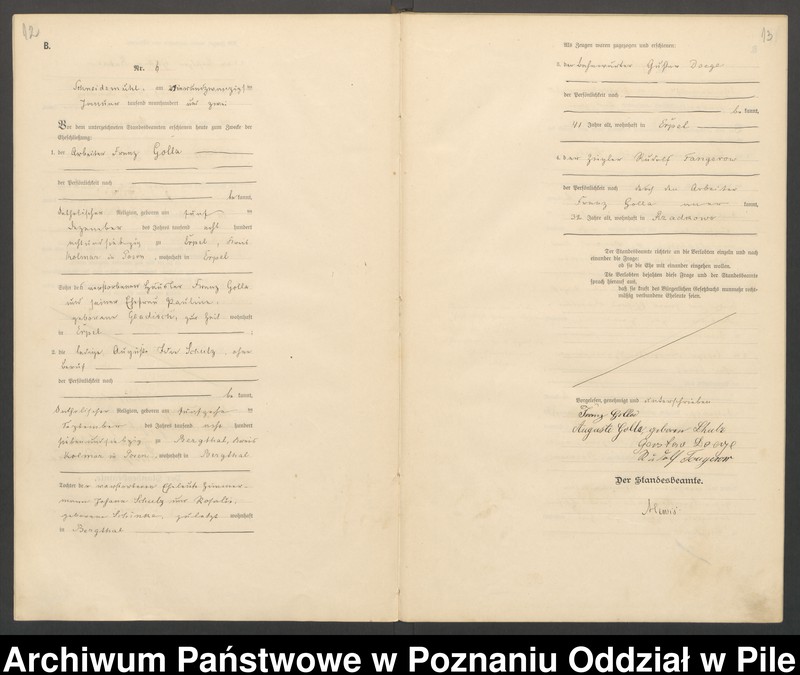 12
B.
Nr. 8
Schneidemühl, am vierundzwanzigsten
Januar tausend neunhundert und zwei
Vor dem unterzeichneten Standesbeamten erschienen heute zum Zwecke der
Eheschließung:
1. der Arbeiter Franz Golla
der Persönlichkeit nach
be kannt,
katholischer Religion, geboren am fünften
Dezember des Jahres tausend acht hundert
achtundsiebzig zu Erpel, Kreis
Kolmar in Posen, wohnhaft in Erpel
Sohn des verstorbenen Häusler Franz Golla
und seiner Ehefrau Pauline,
geborene zur Zeit wohnhaft
in Erpel ;
2. die ledige Auguste Schulz, ohne
Beruf
der Persönlichkeit nach
be kannt,
katholischer Religion, geboren am
September des Jahres tausend acht hundert
siebenundsiebzig zu Bergthal, Kreis
Kolmar in Posen, wohnhaft in Bergthal
Tochter der verstorbenen Eheleute Zimmer-
mann Johann Schulz und Rosalie,
geborene zuletzt wohnhaft
in Bergthal
13
Als Zeugen waren zugezogen und erschienen:
3. der Gustav
der Persönlichkeit nach
be kannt,
41 Jahre alt, wohnhaft in Erpel
4. der Ziegler Rudolf Fangerow
der Persönlichkeit nach durch den Arbeiter
Franz Golla kannt,
32 Jahre alt, wohnhaft in
Der Standesbeamte richtete an die Verlobten einzeln und nach
einander die Frage:
ob sie die Ehe mit einander eingehen wollen.
Die Verlobten bejahten diese Frage und der Standesbeamte
sprach hierauf aus,
daß sie kraft des Bürgerlichen Gesetzbuchs nunmehr recht-
mäßig verbundene Eheleute seien.
Vorgelesen, genehmigt und unterschrieben
Franz Golla
Auguste Golla geborene Schulz
Gustav
Rudolf Fangerow
Der Standesbeamte.
Archiwum Państwowe w Poznaniu Oddział w Pile